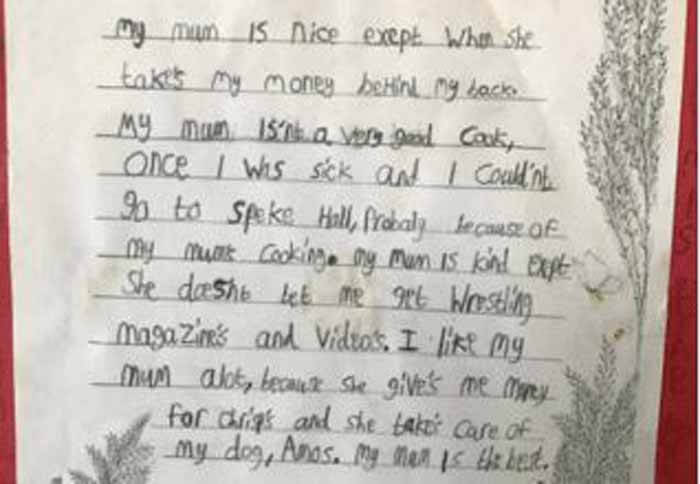 my mum is nice exept when she
take's my money behind my back.
My mum is'nt a very good cook,
Once I was sick and I could'nt
go to Speke Hall, Probaly because of
my mums cooking. my mum is kind exept
She doesnt let me get wrestling
magazine's and video's. I like my
mum alot, because she give's me money
for chrip's and she take's care of
my dog, Amos. my mum is the best.